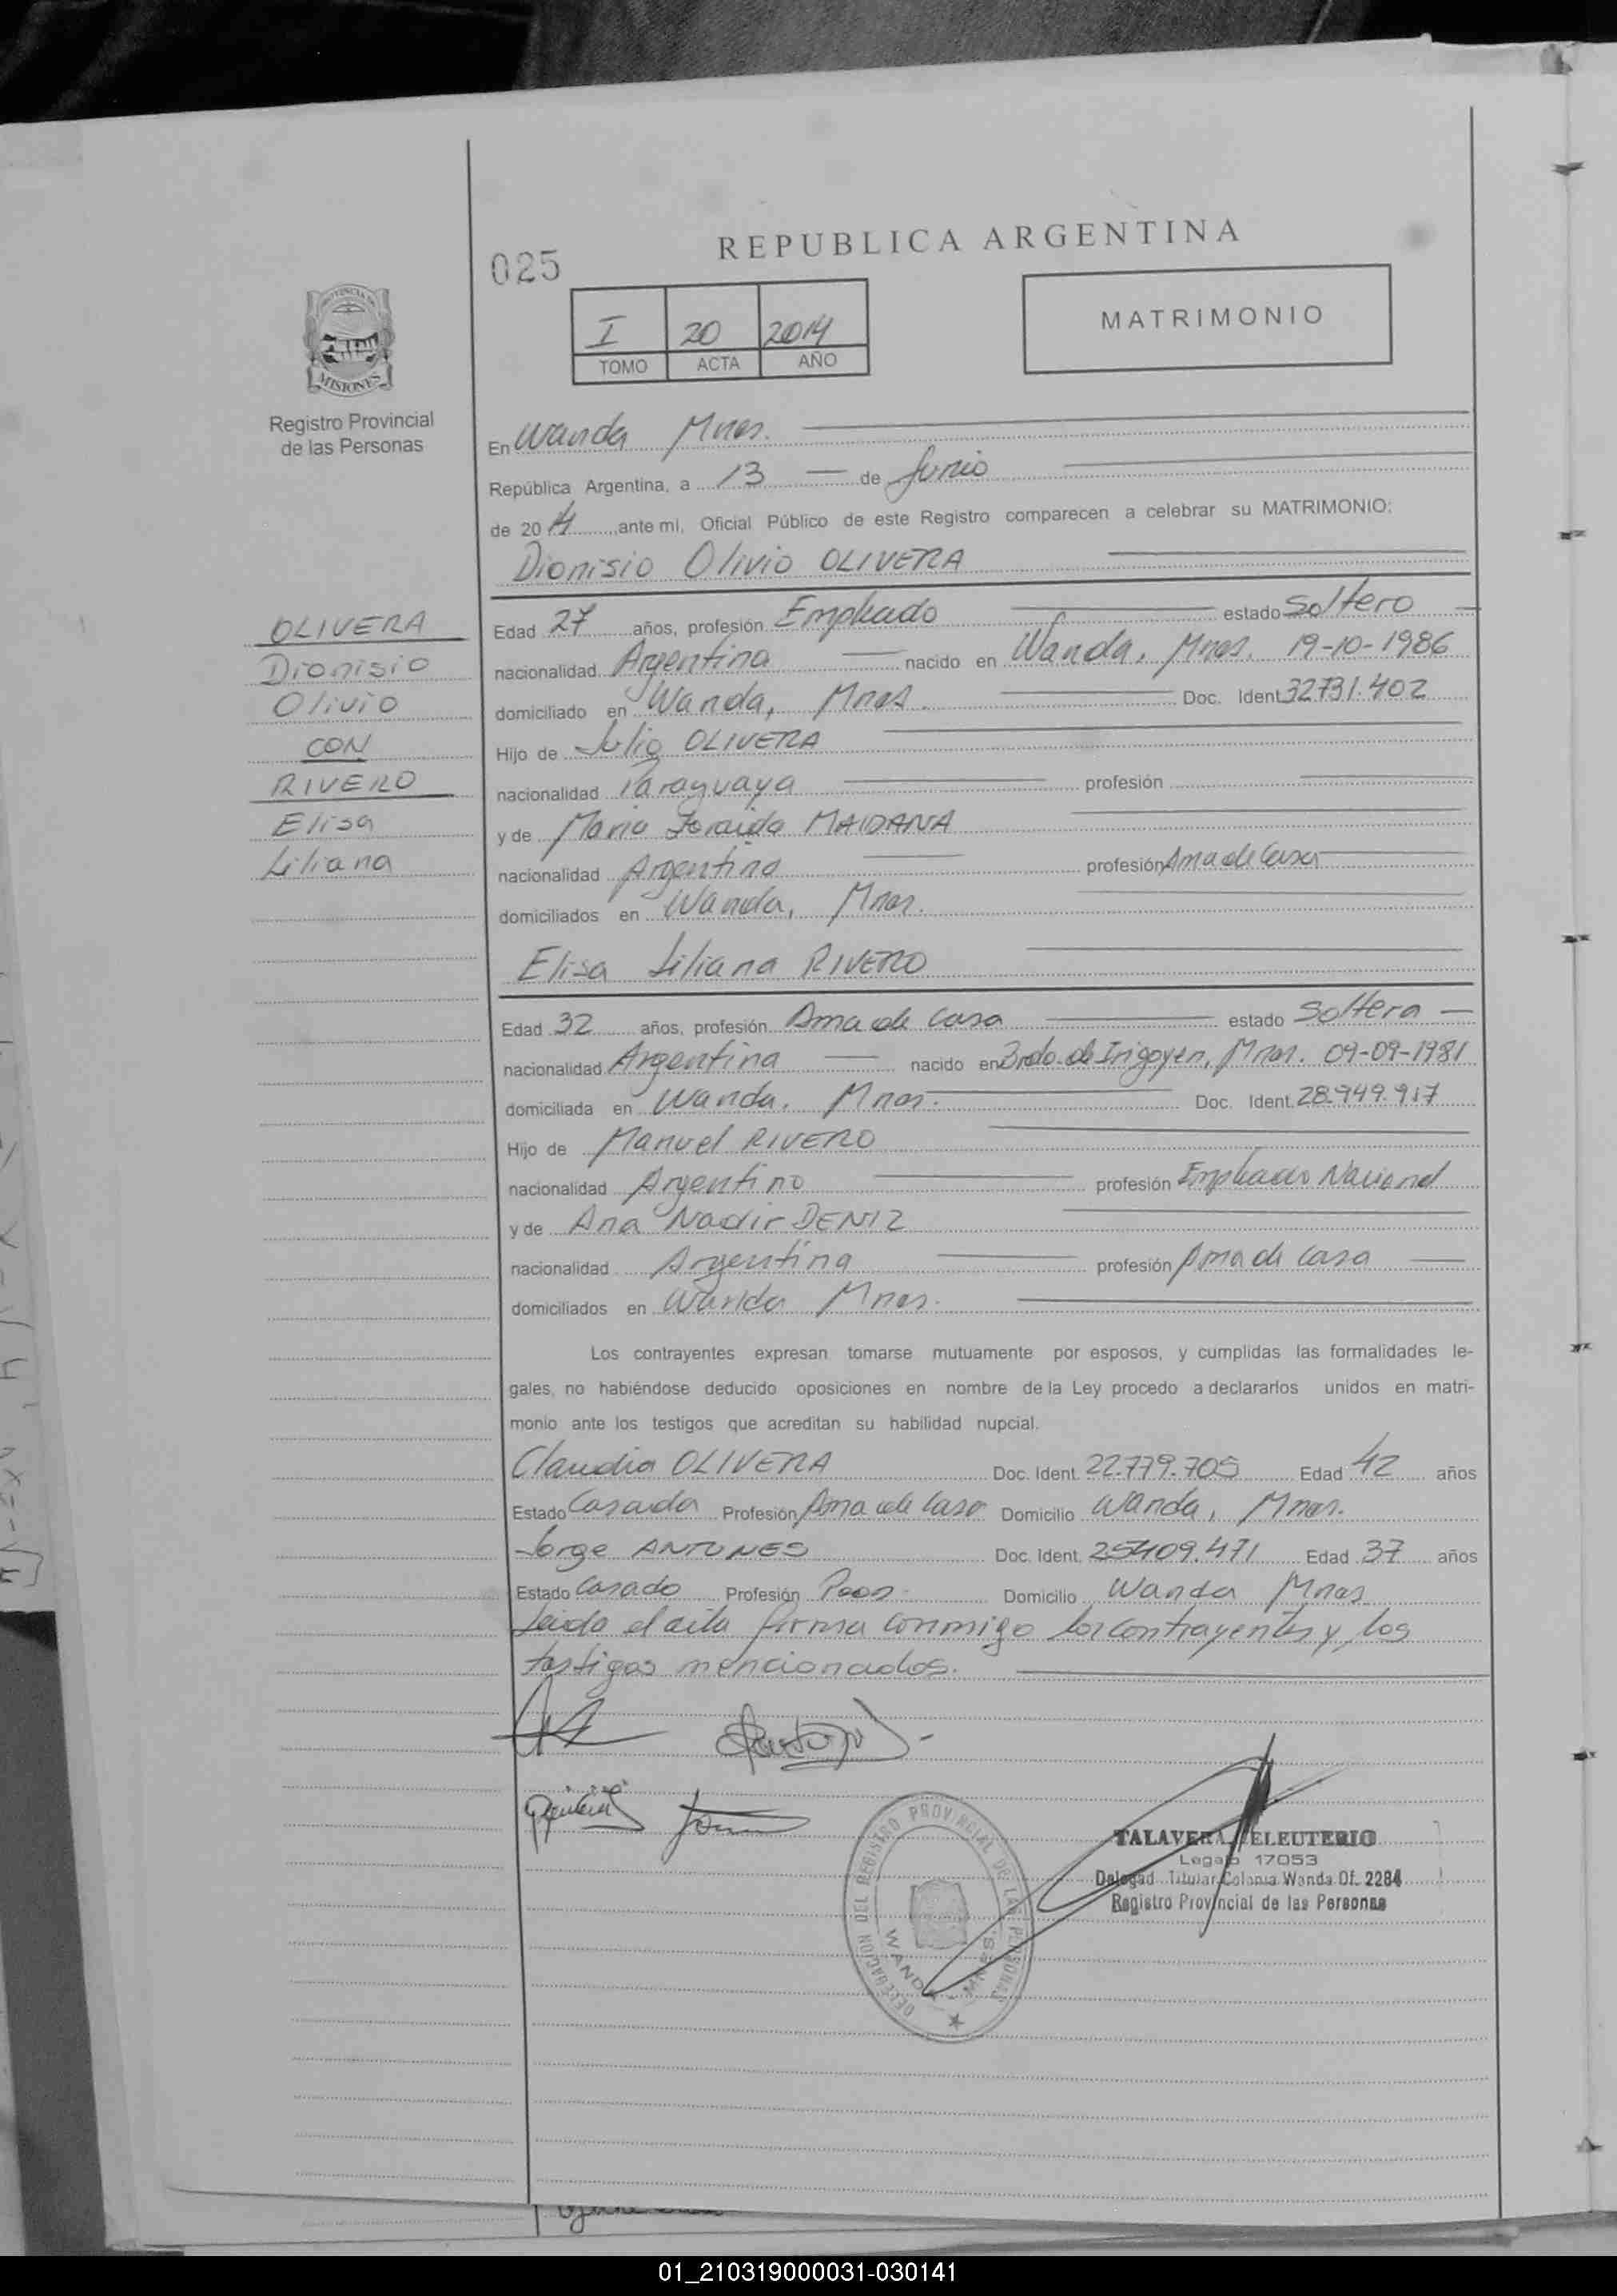 REPUBLICA ARGENTINA
025
I 20 2014
TOMO ACTA AÑO
MATRIMONIO
PROVINCIA DE
MISIONES
Registro Provincial
de las Personas
En Wanda Mnes.
República Argentina, a 13 de Junio
de 2014, ante mi, Oficial Público de este Registro comparecen a celebrar su MATRIMONIO:
Dionisio Olivio OLIVERA
OLIVERA
Dionisio
Olivio
CON
RIVERO
Elisa
Liliana
Edad 27 años, profesión Empleado estado Soltero
nacionalidad Argentina nacido en Wanda, Mnes. 19-10-1986
domiciliado en Wanda, Mnes. Doc. Ident. 32731.402
Hijo de Julio OLIVERA
nacionalidad Paraguaya profesión
y de Maria Zoraida MAIDANA
nacionalidad Argentina profesión Ama de Casa
domiciliados en Wanda, Mnes.
Elisa Liliana RIVERO
Edad 32 años, profesión Ama de Casa estado Soltera
nacionalidad Argentina nacido en Brdo. de Irigoyen, Mnes. 09-09-1981
domiciliada en Wanda, Mnes. Doc. Ident. 28.949.917
Hijo de Manuel RIVERO
nacionalidad Argentino profesión Empleado Nacional
y de Ana Nadir DENIZ
nacionalidad Argentina profesión Ama de Casa
domiciliados en Wanda Mnes.
Los contrayentes expresan tomarse mutuamente por esposos, y cumplidas las formalidades le-
gales, no habiéndose deducido oposiciones en nombre de la Ley procedo a declararlos unidos en matri-
monio ante los testigos que acreditan su habilidad nupcial.
Claudia OLIVERA Doc. Ident. 22.779.705 Edad 42 años
Estado Casada Profesión Ama de Casa Domicilio Wanda, Mnes.
Jorge ANTUNES Doc. Ident. 25409.471 Edad 37 años
Estado Casado Profesión Peon Domicilio Wanda Mnes
Leida el acta firma conmigo los contrayentes y los
testigos mencionados.
DELEGACION DEL REGISTRO PROVINCIAL DE LAS PERSONAS
WANDA - MNES.
TALAVERA, ELEUTERIO
Legajo 17053
Delegad. Titular Colonia Wanda Of. 2284
Registro Provincial de las Personas
01_210319000031-030141